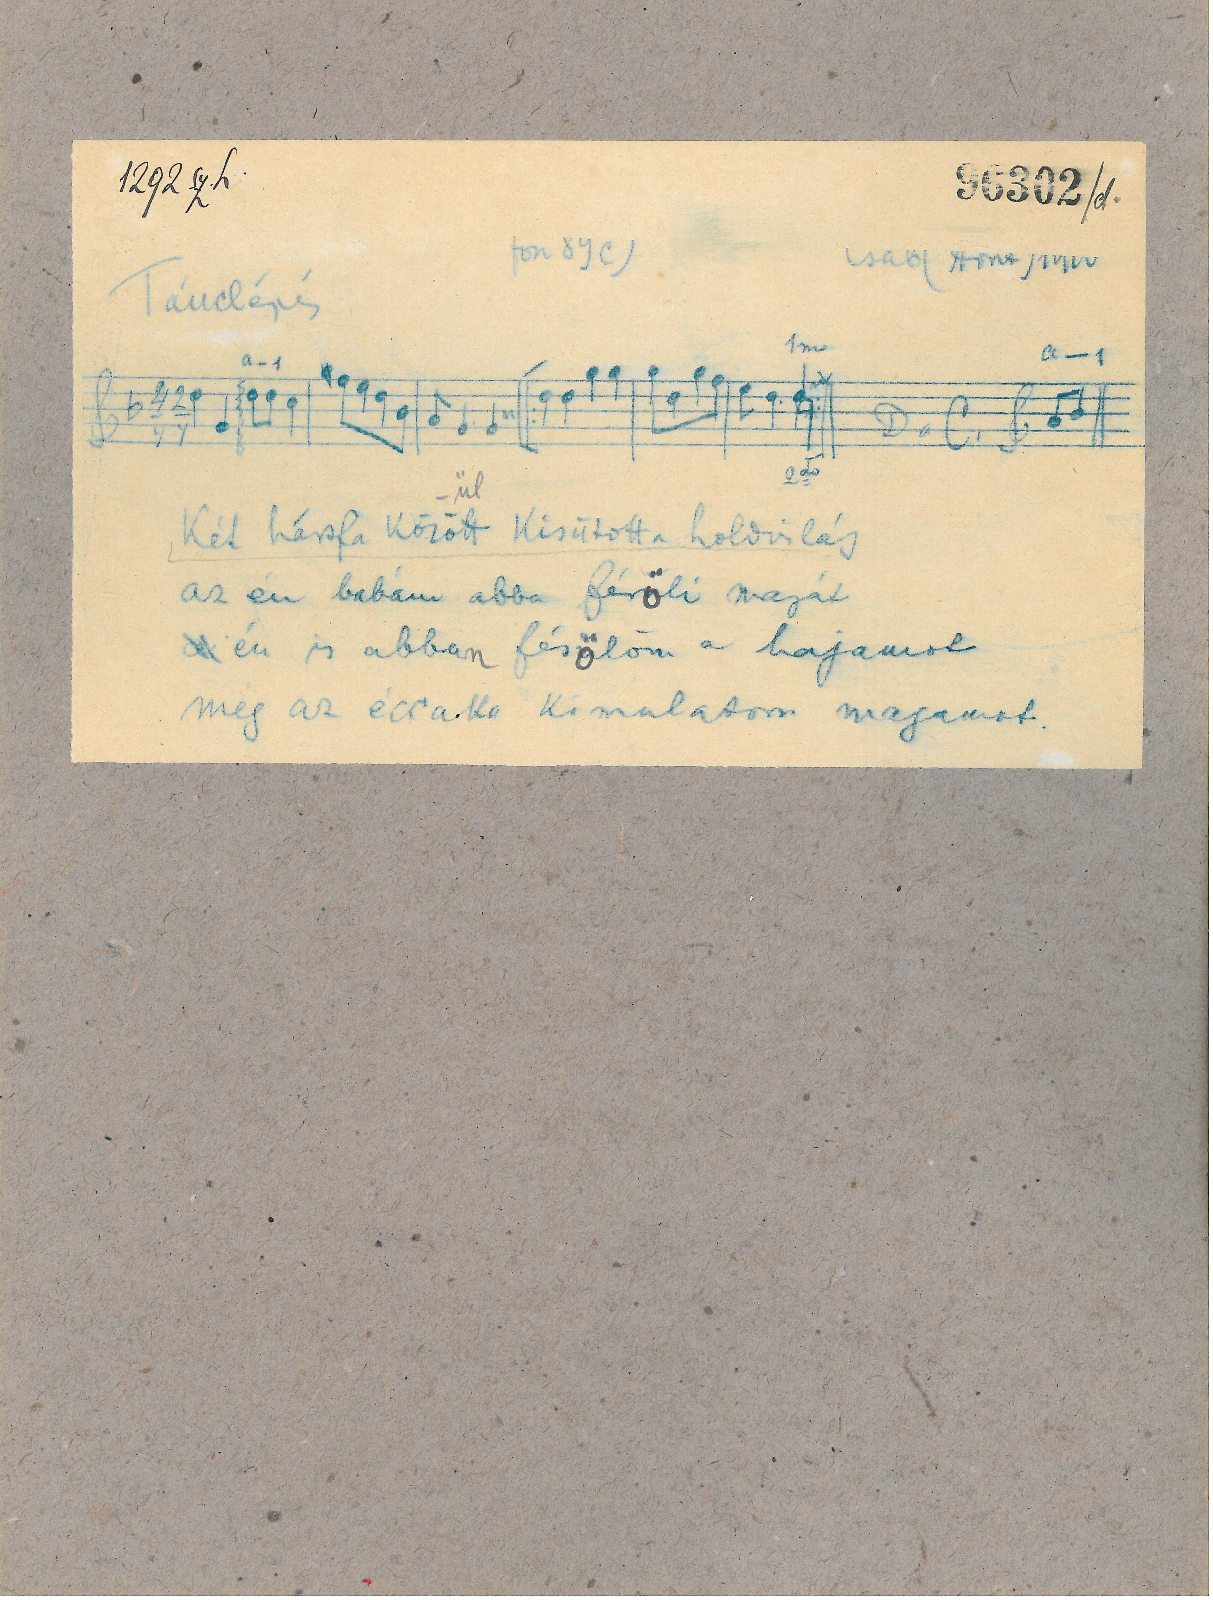 1292
96302/d.
fon 89 c)
Csab Hont
Tánclépés
a-1
1m
a-1
4 2
4 4
D. C.
2do
-ül
Két hársfa között kisütött a holdvilág
az én babám abba fésöli magát
én is abban fésölöm a hajamot
még az éccaka kimulatom magamot.